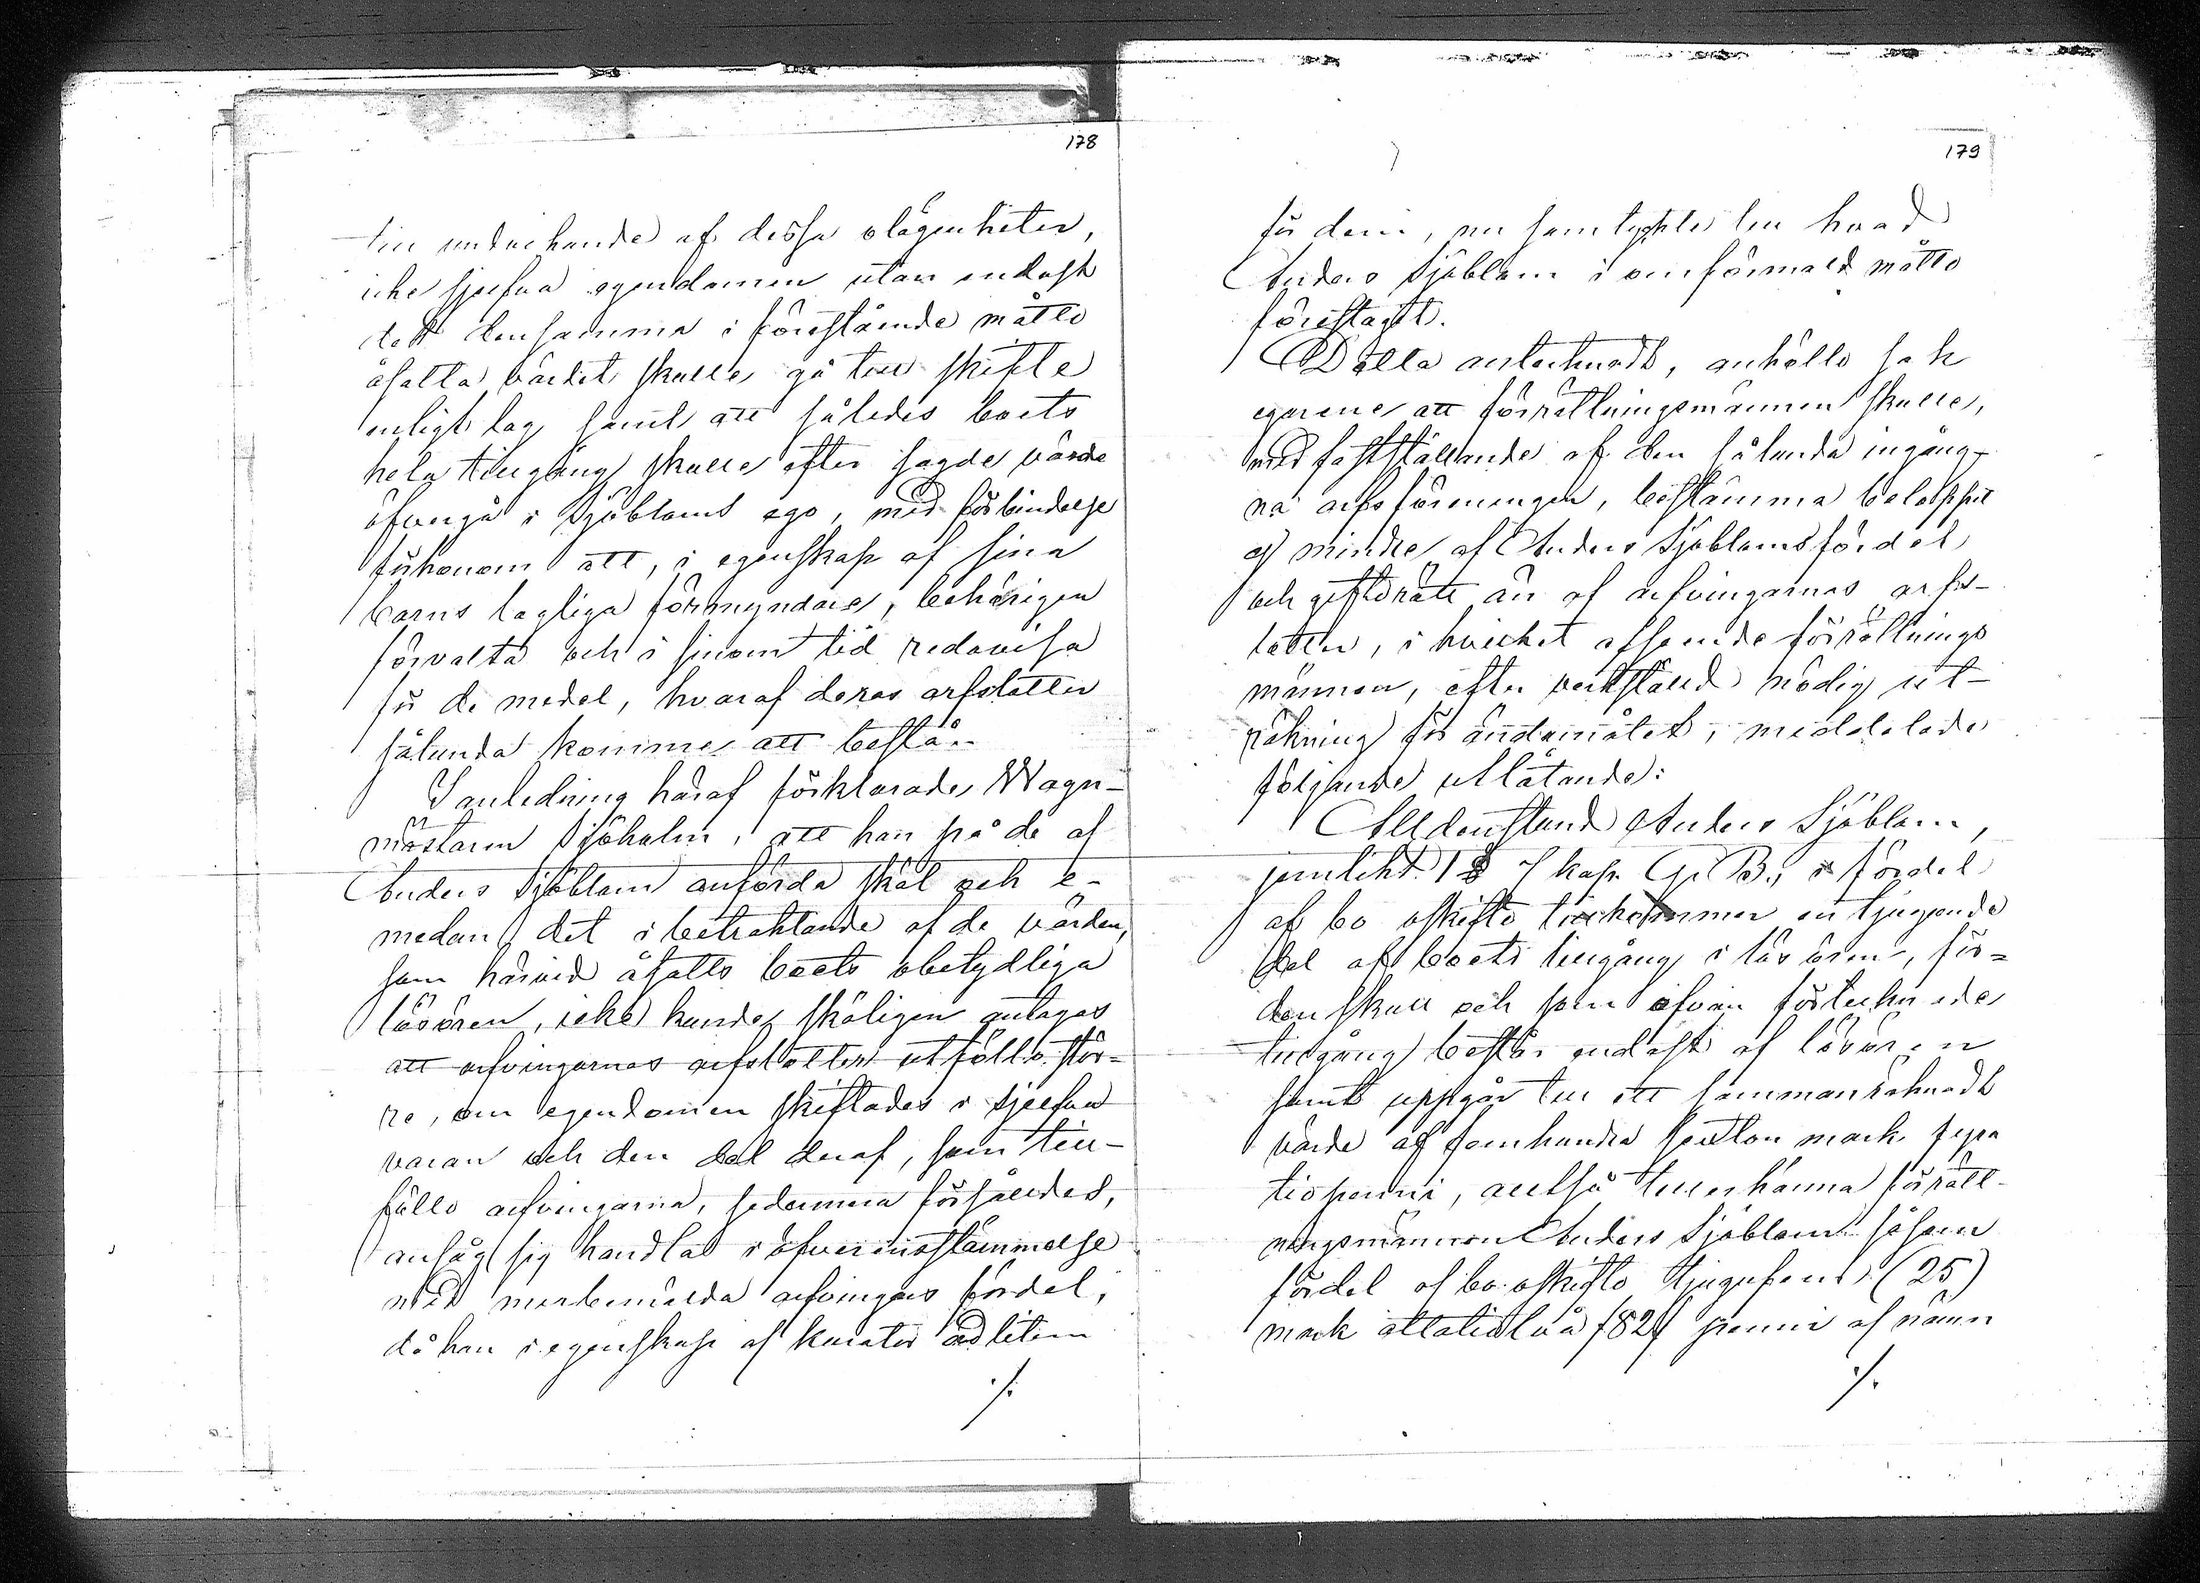 178
till undvikande af dessa olägenheter,
icke sjelfva egendomen utan endast
dett densamma i förestående måtto
åsatta värdet skulle gå till skifte
enligt lag samt att således boets
hela tillgång skulle efter sagde värde
öfvergå i Sjöbloms ego, med förbindelse
för honom att, i egenskap af sina
barns lagliga förmyndare, behörigen
förvalta och i sinom tid redovisa
för de medel, hvaraf deras arfslotter
sålunda komme att bestå.
I anledning häraf förklarade Wagn-
mästaren Sjöholm, att han på de af
Anders Sjöblom anförda skäl och e-
medan det i betraktande af de värden,
som härvid åsatts boets obetydliga
lösören, icke kunde skäligen antagas
att arfvingarnes arfslotter utfölle stör-
re, om egendomen skiftades i sjelfva
varan och den del deraf, som till-
fölle arfvingarna, sedermera försåldes,
ansåg sig handla i öfverensstämmelse
med merbemälda arfvingars fördel,
då han i egenskap af kurator ad litem
./.
179
för dem, nu samtyckte till hvad
Anders Sjöblom i omförmäld måtto
föreslagit.
Detta antecknadt, anhöllo sak
egarene att förrättningsmännen skulle,
med fastställande af den sålunda ingång-
na arfsföreningen, bestämma beloppet
ej mindre af Anders Sjöbloms fördel
och giftorätt än af arfvingarnes arfs-
lotter, i hvilket afseende förrättnings
männen, efter verkställd nödig ut-
räkning för ändamålet, meddelade
följande utlåtande:
Alldenstund Anders Sjöblom,
jemlikt 1 § 7 kap. G. B., i fördel
af bo oskifto tillkommer en tjugonde
del af boets tillgång i lösören, för-
denskull och som ofvan förtecknade
tillgång består endast af lösören
samt uppgår till ett sammanräknadt
värde af femhundra sexton mark fyra
tio penni, alltså tillerkänna förrätt-
ningsmännen Anders Sjöblom såsom
fördel af bo oskifto tjugufem (25)
mark åttatiotvå /82/ penni af nämn
./.